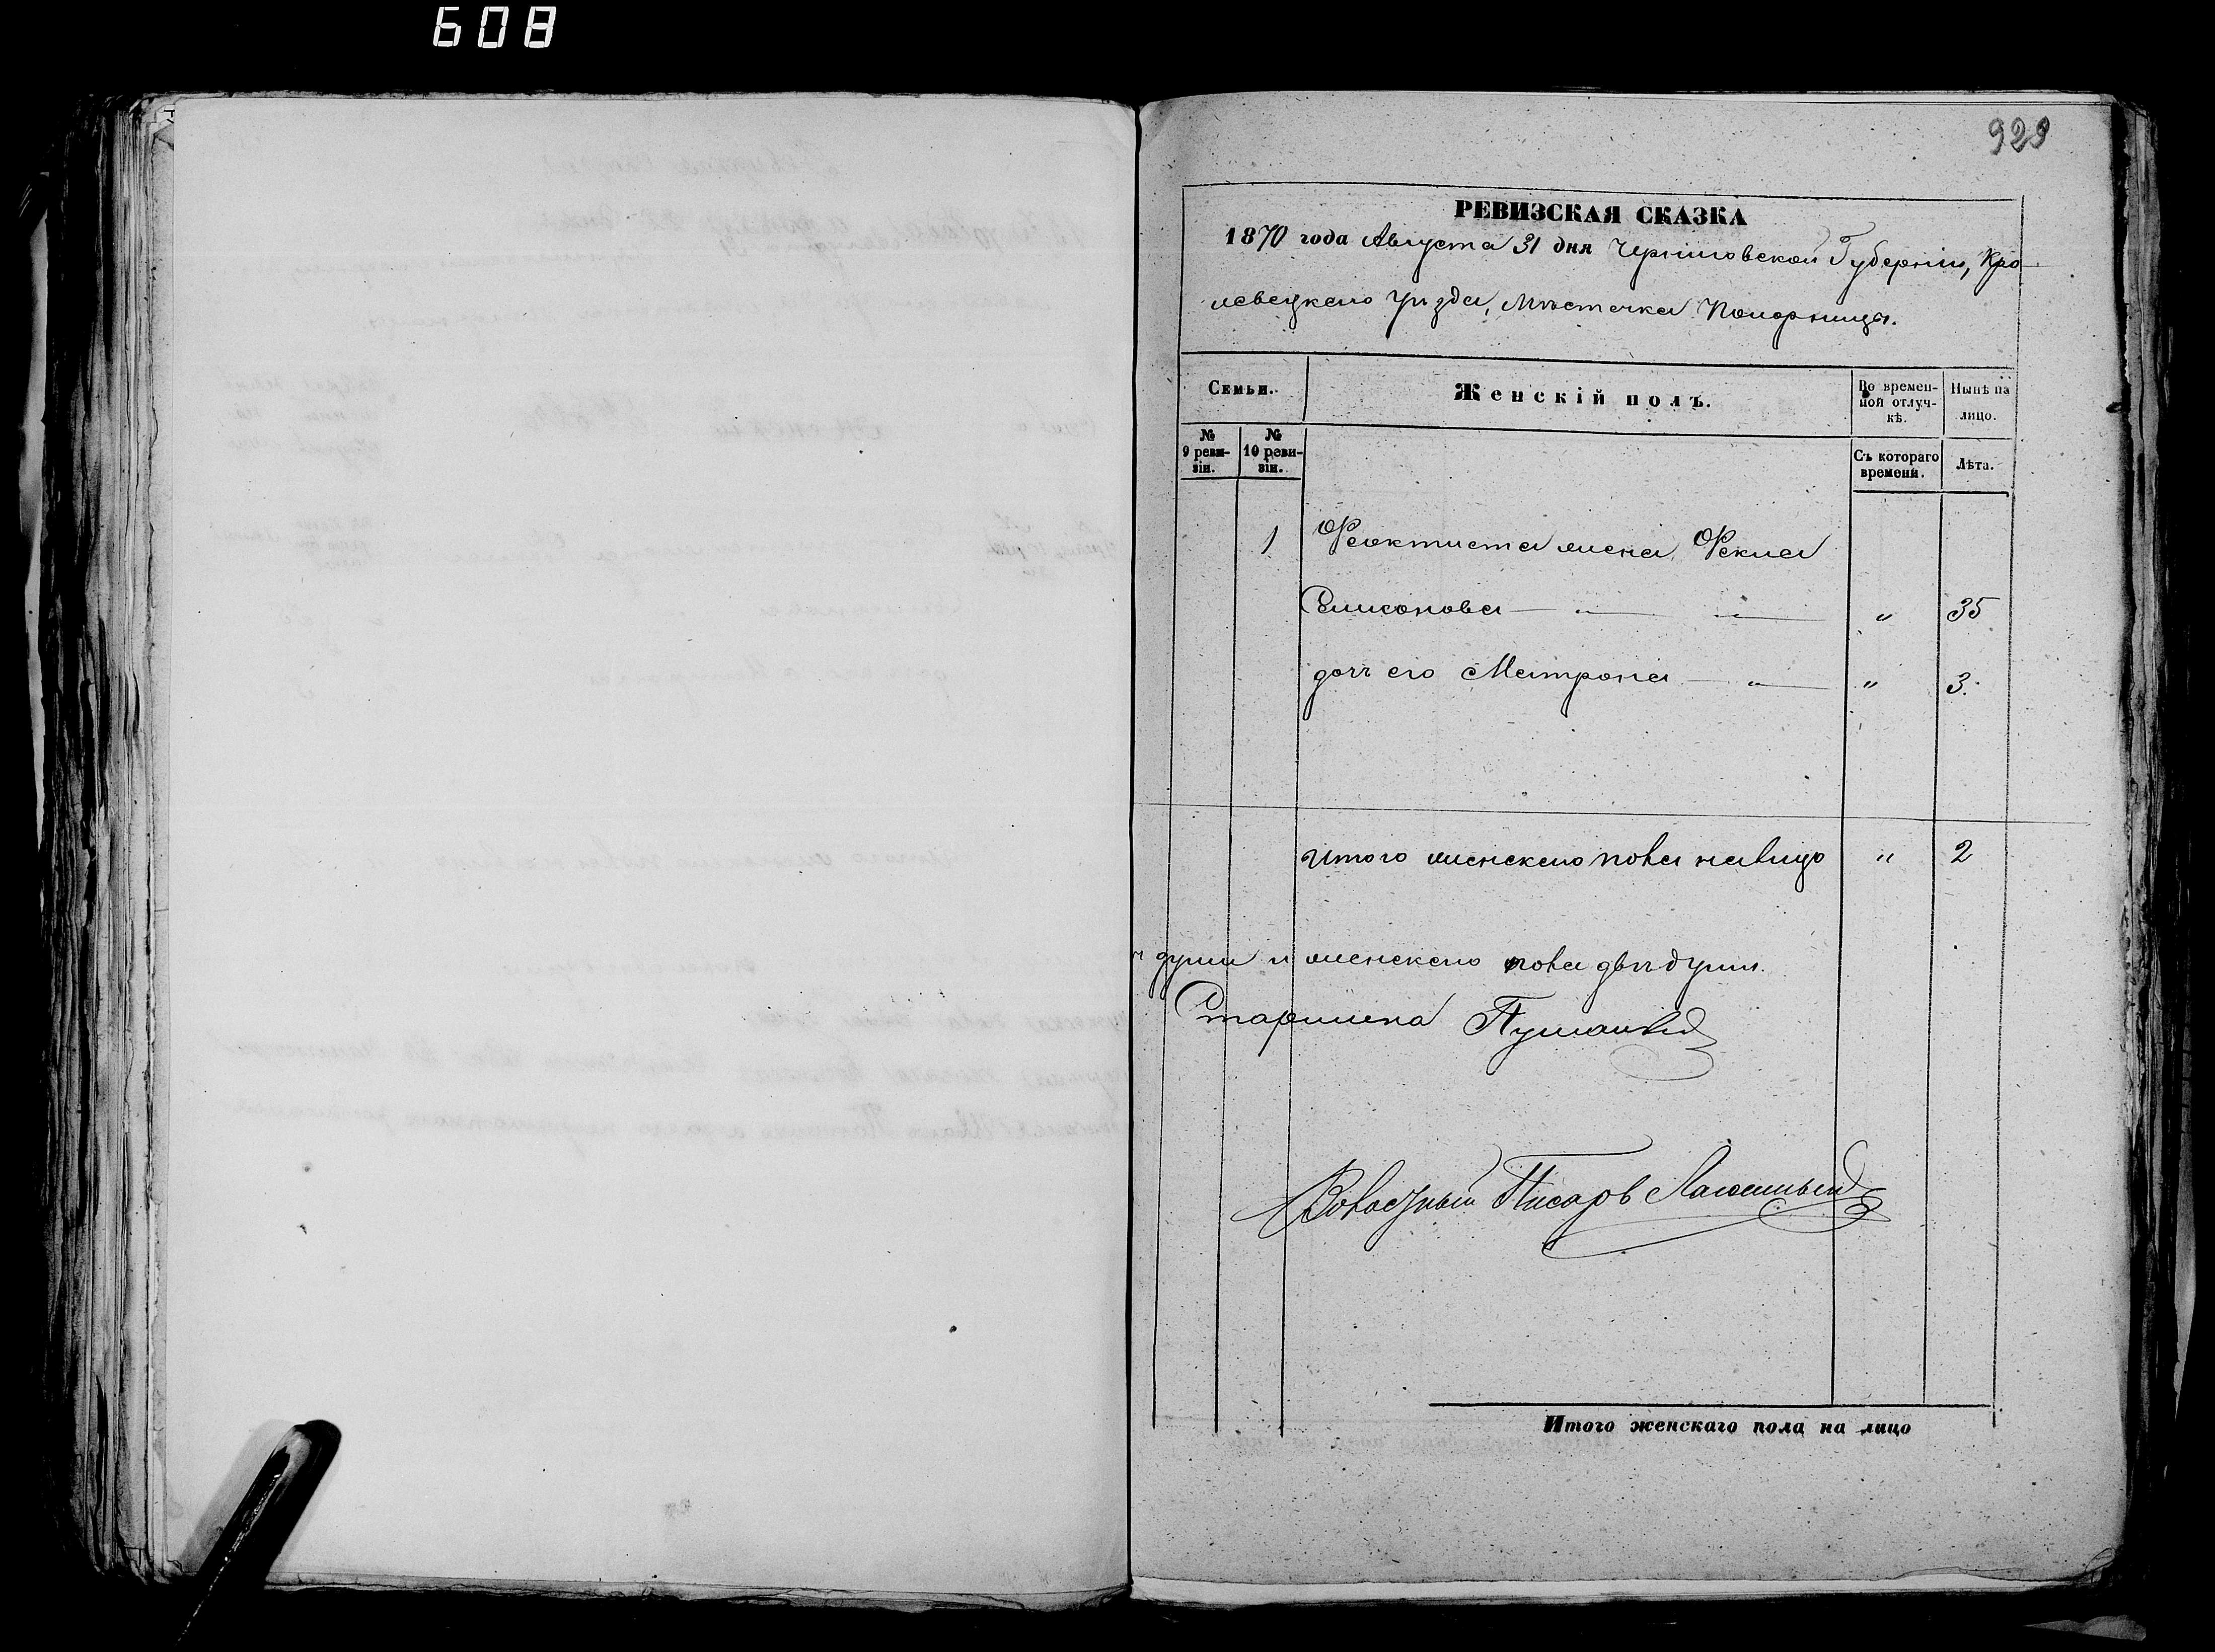 608
929
РЕВИЗСКАЯ СКАЗКА
1870 года Августа 31 дня Черниговской Губерніи, Кро-
левецкаго Уѣзда, Мѣстечка Понорницы.
Семьи.
Женскій полъ.
Во времен-
ной отлуч-
кѣ.
Нынѣ на
лицо.
№
9 реви-
зіи.
№
10 реви-
зіи.
Съ котораго
времени.
Лѣта.
1 Феоктиста жена Фекла
Симонова — " — " — " 35
дочь его Матрона — " — " 3.
Итого женскаго пола налицо " 2
души и женскаго пола двѣ души.
Старшина
Волостный Писарь
Итого женскаго пола на лицо